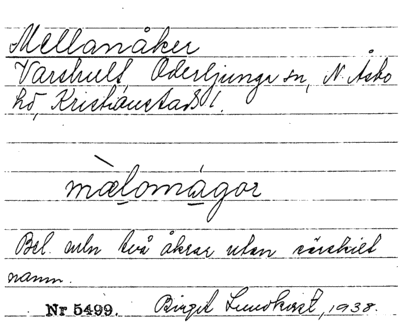 Mellanåker
Varshult, Oderljunga sn, N. Åsbo
hd, Kristianstads l.
mæ̀lomágor
Bel. mln två åkrar utan särskilt
namn.
Nr 5499. Birgit Lundkvist, 1938.